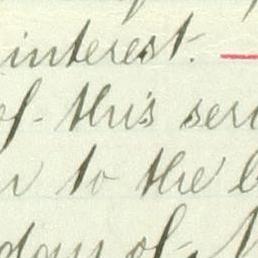 interest.
of this
to the
day of